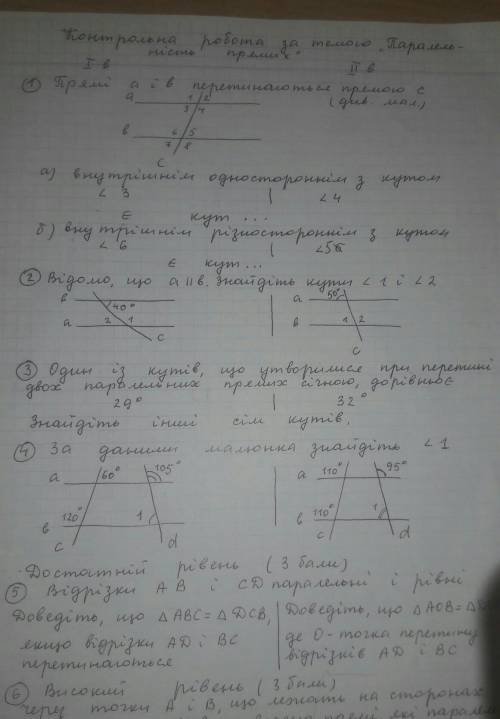 Контрольна робота за темою „Паралель-
ність прямих"
I в II в
① Прямі а і в перетинаються прямою с
(див. мал.)
а 1 2
3 4
в 6 5
7 8
с
а) внутрішнім одностороннім з кутом
∠ 3 | ∠ 4
є кут ...
б) внутрішнім різностороннім з кутом
∠ 6 | ∠5
є кут ...
② Відомо, що а||в. Знайдіть кути ∠ 1 і ∠ 2
в 40° а 50°
а 2 1 в 1 2
с с
③ Один із кутів, що утворилися при перетині
двох паралельних прямих січною, дорівнює
29° | 32°
Знайдіть інші сім кутів.
④ За даними малюнка знайдіть ∠ 1
а 60° 105° а 110° 95°
в 120° 1 в 110° 1
с d с d
Достатній рівень (3 бали)
⑤ Відрізки АВ і CD паралельні і рівні
Доведіть, що △ АВС = △ DCB, | Доведіть, що △ АОВ = △
якщо відрізки AD і ВС | де О - точка перетину
перетинаються | відрізків AD і ВС
⑥ Високий рівень (3 бали)
Через точки А і В, що лежать на сторонах
прямі, які